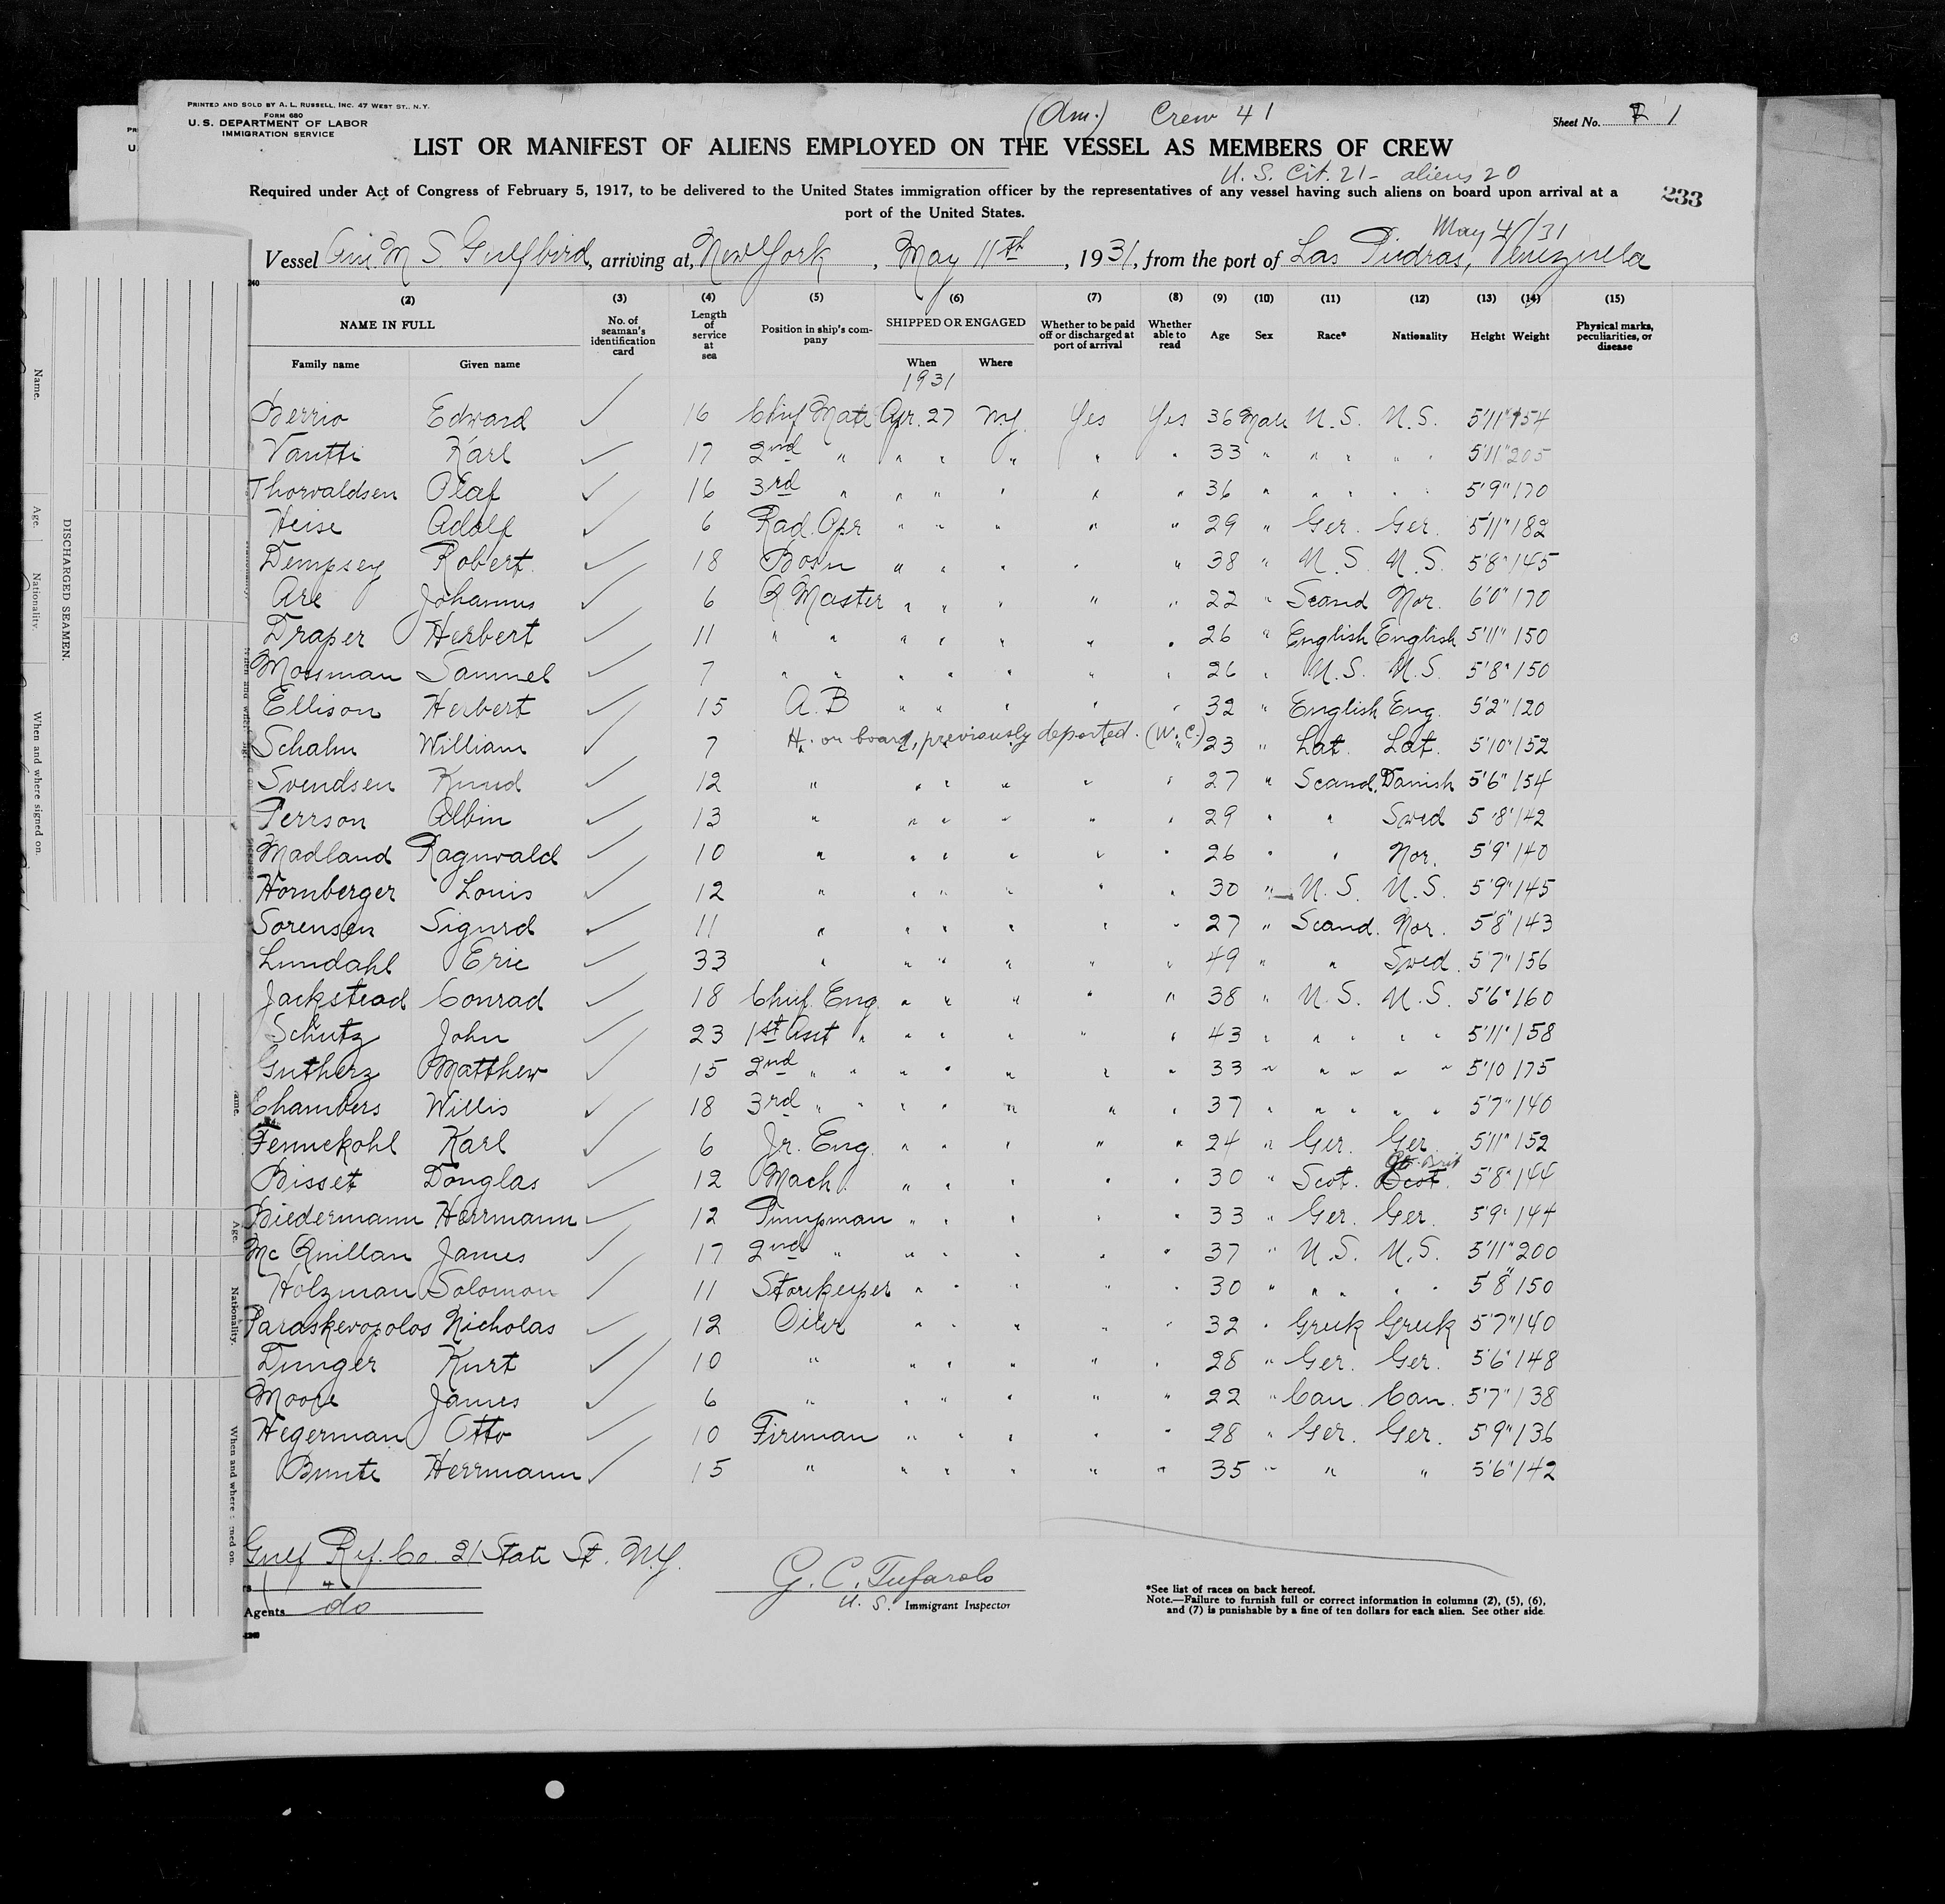 PRINTED AND SOLD BY A. L. RUSSELL, INC. 47 WEST ST., N.Y.
FORM 680
U. S. DEPARTMENT OF LABOR
IMMIGRATION SERVICE
(Am.) Crew 41
Sheet No. 1
LIST OR MANIFEST OF ALIENS EMPLOYED ON THE VESSEL AS MEMBERS OF CREW
U. S. Cit. 21 - aliens 20
Required under Act of Congress of February 5, 1917, to be delivered to the United States immigration officer by the representatives of any vessel having such aliens on board upon arrival at a
port of the United States.
233
May 4/31
Vessel Am M S. Gulfbird, arriving at New York, May 11th, 1931, from the port of Las Piedras, Venezuela
240
(2) (3) (4) (5) (6) (7) (8) (9) (10) (11) (12) (13) (14) (15)
NAME IN FULL
Family name Given name
No. of seaman's identification card
Length of service at sea
Position in ship's company
SHIPPED OR ENGAGED
When Where
Whether to be paid off or discharged at port of arrival
Whether able to read
Age Sex Race* Nationality Height Weight
Physical marks, peculiarities, or disease
1931
Berrio Edward ✓ 16 Chief Mate Apr. 27 N.Y. Yes Yes 36 Male U. S. U. S. 5'11" 154
Vantti Karl ✓ 17 2nd " " " " " " 33 " " " " " 5'11" 205
Thorvaldsen Olaf ✓ 16 3rd " " " " " " 36 " " " " " 5'9" 170
Heise Adolf ✓ 6 Rad. Opr " " " " " 29 " Ger. Ger. 5'11" 182
Dempsey Robert ✓ 18 Bosn " " " " " 38 " U. S. U. S. 5'8" 145
Are Johannus ✓ 6 Q Master " " " " " 22 " Scand Nor. 6'0" 170
Draper Herbert ✓ 11 " " " " " " " 26 " English English 5'11" 150
Mossman Samuel ✓ 7 " " " " " " " 26 " U. S. U. S. 5'8" 150
Ellison Herbert ✓ 15 A. B " " " " " 32 " English Eng. 5'2" 120
Schalm William ✓ 7 H. on board, previously deported. (W. C.) 23 " Lat. Lat. 5'10" 152
Svendsen Knud ✓ 12 " " " " " " 27 " Scand. Danish 5'6" 154
Perrson Albin ✓ 13 " " " " " " 29 " " Swed 5'8" 142
Madland Ragnwald ✓ 10 " " " " " " 26 " " Nor. 5'9" 140
Hornberger Louis ✓ 12 " " " " " " 30 " U. S. U. S. 5'9" 145
Sorensen Sigurd ✓ 11 " " " " " " 27 " Scand. Nor. 5'8" 143
Lundahl Eric ✓ 33 " " " " " " 49 " " Swed. 5'7" 156
Jackstead Conrad ✓ 18 Chief Eng. " " " " " 38 " U. S. U. S. 5'6" 160
Schutz John ✓ 23 1st Asst " " " " " " 43 " " " " " 5'11" 158
Gutherz Matthew ✓ 15 2nd " " " " " " " 33 " " " " " 5'10 175
Chambers Willis ✓ 18 3rd " " " " " " " 37 " " " " " 5'7" 140
Fennekohl Karl ✓ 6 Jr. Eng. " " " " " 24 " Ger. Ger 5'11" 152
Bisset Douglas ✓ 12 Mach. " " " " " 30 " Scot. Gt. Brit Scot. 5'8" 144
Biedermann Herrmann ✓ 12 Pumpman " " " " " 33 " Ger. Ger. 5'9" 144
Mc Quillan James ✓ 17 2nd " " " " " " 37 " U. S. U. S. 5'11" 200
Holzman Solomon ✓ 11 Storekeeper " " " " " 30 " " " " " 5'8" 150
Paraskevopolos Nicholas ✓ 12 Oiler " " " " " 32 " Greek Greek 5'7" 140
Dunger Kurt ✓ 10 " " " " " " 28 " Ger. Ger. 5'6" 148
Moore James ✓ 6 " " " " " " 22 " Can. Can. 5'7" 138
Hegerman Otto ✓ 10 Fireman " " " " " 28 " Ger. Ger. 5'9" 136
Bunte Herrmann ✓ 15 " " " " " " 35 " " " 5'6" 142
Gulf Ref. Co. 21 State St. N.Y.
Agents do
G. C. Tufarolo
U. S. Immigrant Inspector
*See list of races on back hereof.
Note.—Failure to furnish full or correct information in columns (2), (5), (6),
and (7) is punishable by a fine of ten dollars for each alien. See other side.
Name.
Age.
Nationality.
When and where signed on.
DISCHARGED SEAMEN.
Age.
Nationality.